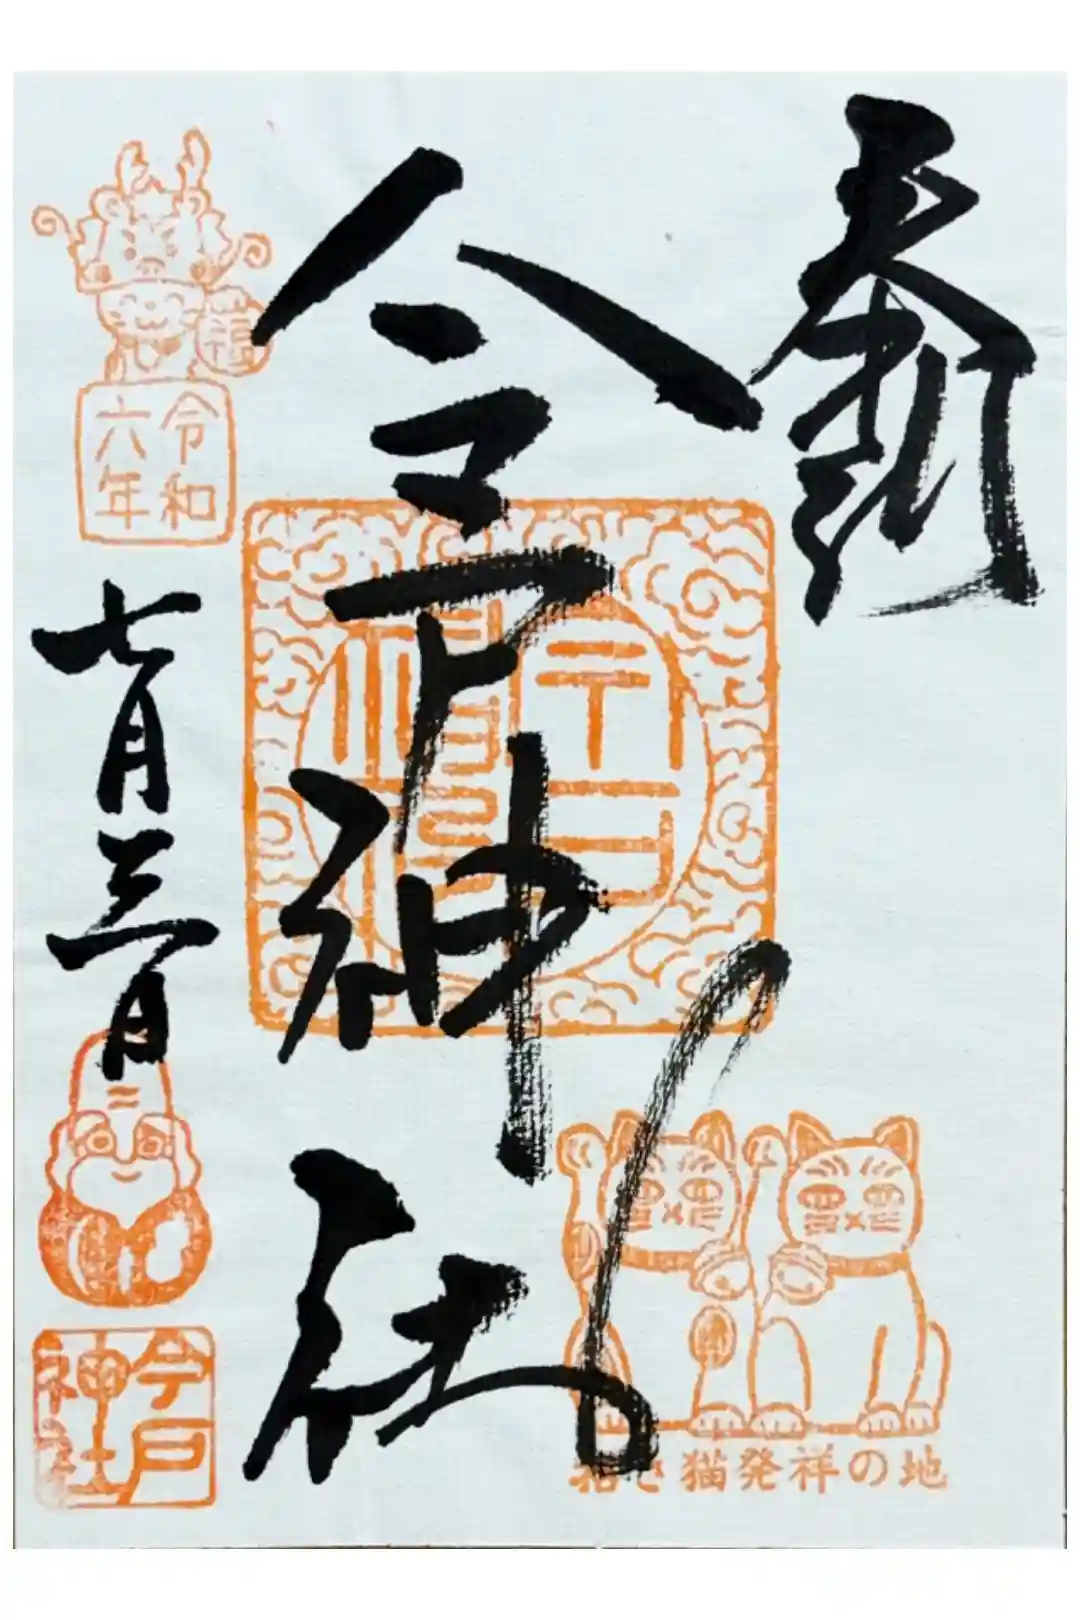 奉拝
今戸神社
招き猫発祥の地
福
令和
六年
七月三日
今戸
神社